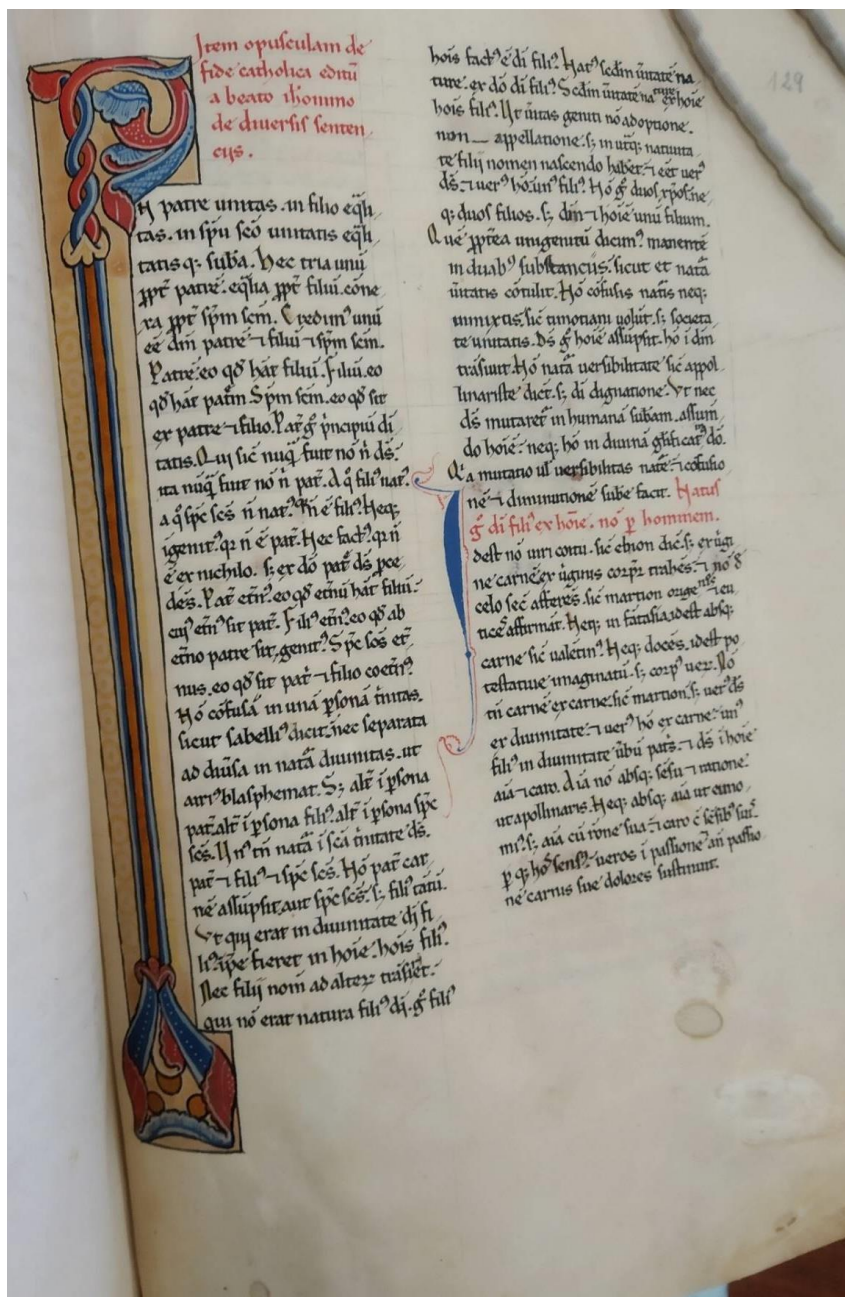 Item opusculam de
fide catholica editū
a beato ihonimo
de diuersis senten
ciis.
N patre unitas. in filio eq̄li
tas. in sp̄u sc̄o unitatis eq̄li
tatis q; suba. Hec tria unū
ꝓpt̄ patrē. eq̄lia ꝓpt̄ filiū. cōne
xa ꝓpt̄ sp̄m sc̄m. Credimꝰ unū
eē dm̄ patrē ⁊ filiū ⁊ sp̄m sc̄m.
Patrē. eo qđ hāt filiū. Filiū. eo
qđ hāt pat̄m. Sp̄m sc̄m. eo qđ sit
ex patre ⁊ filio. Pat̄ gͦ pͥncipiū di
tatis. Qui sic̄ nūq̄ fuit nō n̄ dꝰ.
ita nūq̄ fuit nō n̄ pat̄. A qͦ filiꝰ natꝰ.
a qͦ sp̄c sc̄s n̄ natꝰ. qn̄ ē filiꝰ. Neq;
igenitꝰ. qꝛ n̄ ē pat̄. Nec factꝰ. qꝛ n̄
ē ex nichilo. s; ex dō pat̄ ds̄ ꝓce
dēs. Pat̄ et̄nꝰ. eo qđ et̄nū hāt filiū.
cuiꝰ et̄nꝰ sit pat̄. Filiꝰ et̄nꝰ. eo qđ ab
et̄no patre sit genitꝰ. Sp̄c sc̄s et̄
nus. eo qđ sit pat̄ ⁊ filio coet̄nꝰ.
Nō cōfusā in unā ꝑsonā t̄nitas.
sicut sabelliꝰ dicit. nec separata
ad diūsa in nat̄a diuinitas. ut
arriꝰ blasphemat. S; alt̄ ī ꝑsona
pat̄. alt̄ ī ꝑsona filiꝰ. alt̄ ī ꝑsona sp̄c
sc̄s. Unꝰ tn̄ nat̄a ī sc̄a t̄nitate ds̄.
pat̄ ⁊ filiꝰ ⁊ sp̄c sc̄s. Nō pat̄ car
nē assūpsit. aut sp̄c sc̄s. s; filiꝰ tātū.
Vt qui erat in diuinitate dj fi
liꝰ. ip̄e fieret in hoīe hois filiꝰ.
Nec filij nom̄ ad alteꝝ trāsiret.
qui nō erat natura filiꝰ dj. gͦ filiꝰ
hois factꝰ ē di filiꝰ. Natꝰ scdm ūitatē na
ture. ex dō di filiꝰ. Scdm ūitatē nature ex hoie
hois filiꝰ. Ut ūitas geniti nō adoptione.
non appellatione. s; in utq; natiuita
te filij nomen nascendo haberet. ⁊ eēt uerꝰ
ds̄. ⁊ uerꝰ hō. unꝰ filiꝰ. Nō gͦ duos xp̄os. ne
q; duos filios. s; dm̄ ⁊ hoiē unū filium.
Quē ꝓpt̄ea unigenitū dicimꝰ. manentē
in duabꝰ substanciis. sicut et nat̄a
ūitatis cōtulit. Nō cōfusis nat̄is neq;
inmixtis. sic̄ timotiani uolūt. s; societa
te unitatis. Ds̄ gͦ hoiē assūpsit. hō ī dm̄
trāsiuit. Nō nat̄a uersibilitate sic̄ appol
linariste dict̄. s; di dignatione. Vt nec
ds̄ mutaret̄ in humanā subam. assum̄
do hoiē. neq; hō in diuinā glīficatꝰ dō.
Qͥa mutatio ul uersibilitas nat̄e. ⁊ cōfusio
nē ⁊ diminutionē sube facit. Natus
gͦ di filiꝰ ex hoīe. nō ꝑ hominem.
dest nō uiri coitu. sic̄ ebion dic̄. s; ex ūgi
ne carnē ex ūginis corpꝛe trahēs. ⁊ nō d̄
celo secū afferēs. sic̄ martion origenꝰ ⁊ eu
ticeˢ affirmāt. Neq; in fātasia. idest absq;
carne sic̄ ualetinꝰ. Neq; docēs. idest po
testatiue imaginatū. s; corpꝰ ueꝝ. Nō
tn̄ carnē ex carne. sic̄ martion. s; uerꝰ ds̄
ex diuinitate. ⁊ uerꝰ hō ex carne. unꝰ
filiꝰ in diuinitate ūbū pat̄s. ⁊ ds̄ ī hoie
aīa ⁊ caro. Aīa nō absq; sēsu ⁊ ratione.
ut apollinaris. Neq; absq; aīa ut euno
miꝰ. s; aīa cū rōne sua. ⁊ caro c̄ sēsibꝰ suis.
ꝑ q; hoˢ sensꝰ. ueros ī passione ⁊ an̄ passio
nē carnis sue dolores sustinuit.
129